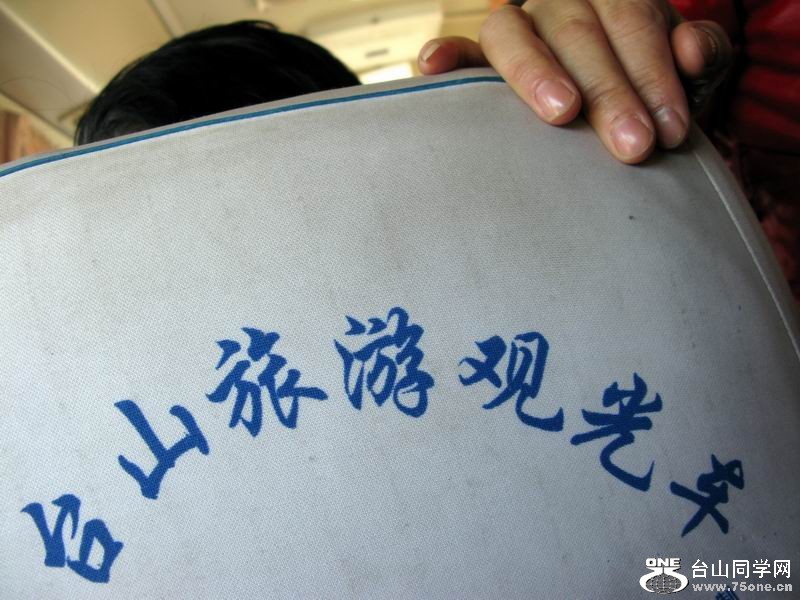 台山旅游观光车
ONE 台山同学网
www.75one.cn